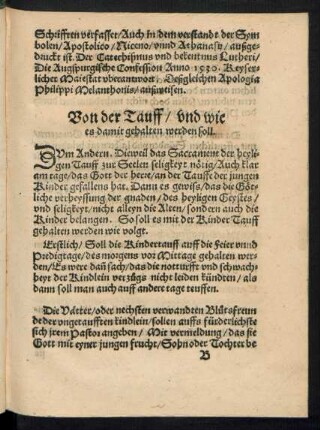 Schrifften verfasset/Auch in dem verstande der Sym
bolen/Apostolico/Niceno/vnnd Athanasy/außge=
druckt ist. Der Catechismus vnd bekentnus Lutheri/
Die Augspurgische Confession Anno 1530. Keyser
licher Maiestat vberantwort/Desgleichen Apologia
Philippi Melanthonis/außweisen.
Von der Tauff/ vnd wie
es damit gehalten werden soll.
ZVm Andern. Dieweil das Sacrament der heyli
gen Tauff zur Seelen seligkeyt nötig/Auch klar
am tage/das Gott der herre/an der Tauffe der jungen
Kinder gefallens hat. Dann es gewiß/das die Göt
liche verheyssung der gnaden/des heyligen Geystes/
vnd seligkeyt/nicht alleyn die Alten/sondern auch die
Kinder belangen. So soll es mit der Kinder Tauff
gehalten werden wie volgt.
Erstlich/ Soll die Kindertauff auff die Feier vnnd
Predigtage/des morgens vor Mittage gehalten wer=
den/Es were dañ sach/das die notturfft vnd schwach=
heyt der Kindlein verzugs nicht leiden kündten/als
dann soll man auch auff andere tage teuffen.
Die Vätter/oder nechsten verwandten Blůtsfreun
de der vngetaufften kindlein/sollen auffs fürderlichste
sich jrem Pastor angeben/ Mit vermeldung/das sie
Gott mit eyner jungen frucht/Sohn oder Tochter be
B